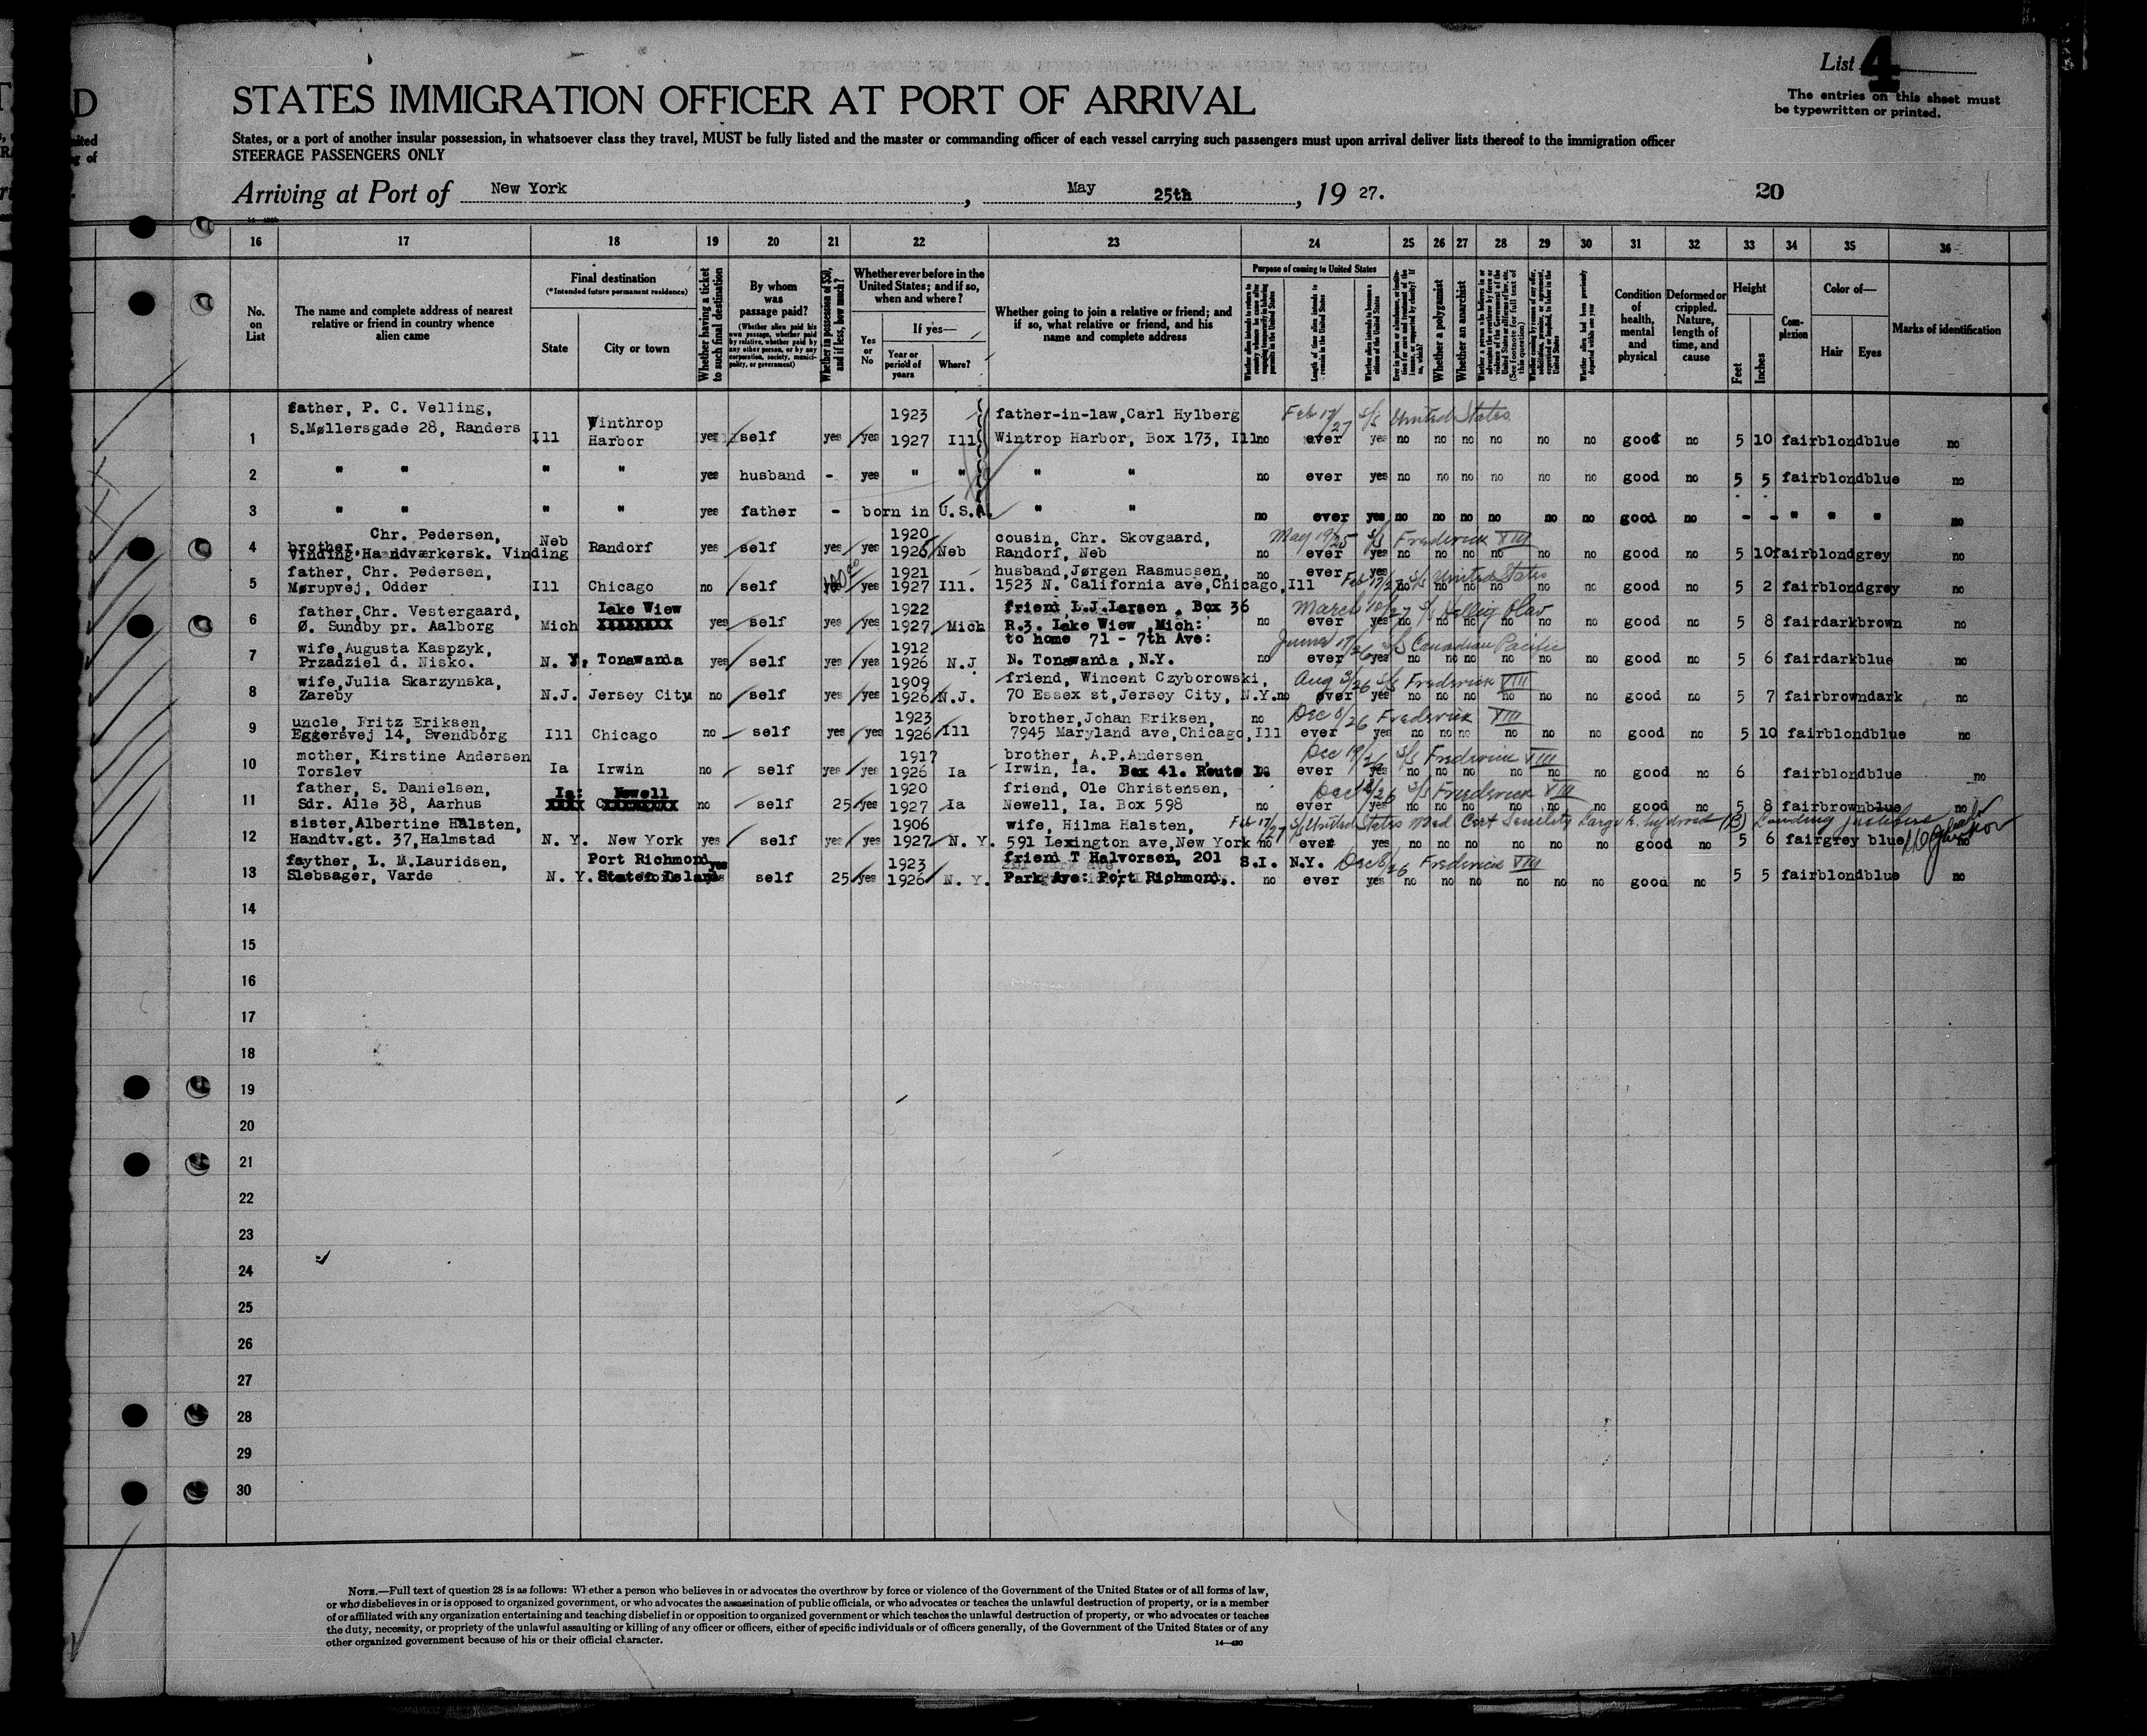 List 4
The entries on this sheet must
be typewritten or printed.
STATES IMMIGRATION OFFICER AT PORT OF ARRIVAL
States, or a port of another insular possession, in whatsoever class they travel, MUST be fully listed and the master or commanding officer of each vessel carrying such passengers must upon arrival deliver lists thereof to the immigration officer
STEERAGE PASSENGERS ONLY
Arriving at Port of New York, May 25th, 19 27. 20
16 17 18 19 20 21 22 23 24 25 26 27 28 29 30 31 32 33 34 35 36
No. on List
The name and complete address of nearest relative or friend in country whence alien came
Final destination
(*Intended future permanent residence)
State
City or town
Whether having a ticket to such final destination
By whom was passage paid?
Whether in possession of $50, and if less, how much?
Whether ever before in the United States; and if so, when and where?
Yes or No
If yes—
Year or period of years
Where?
Whether going to join a relative or friend; and if so, what relative or friend, and his name and complete address
Purpose of coming to United States
Length of time alien intends to remain in the United States
Whether alien intends to become a citizen of the United States
Whether polygamist
Whether an anarchist
Condition of health, mental and physical
Deformed or crippled. Nature, length of time, and cause
Height
Feet
Inches
Complexion
Color of—
Hair
Eyes
Marks of identification
father, P. C. Velling, Winthrop 1923 father-in-law, Carl Hylberg Feb 17/27 S/S United States
1 S.Møllersgade 28, Randers Ill Harbor yes self yes yes 1927 Ill Wintrop Harbor, Box 173, Ill no ever yes no no no no no no good no 5 10 fair blond blue no
2 " " " " yes husband - yes " " " " no ever yes no no no no no no good no 5 5 fair blond blue no
3 " " " " yes father - born in U.S.A. " " no ever yes no no no no no no good no - - " " " no
brother, Chr. Pedersen, Neb 1920 cousin, Chr. Skovgaard, May 19/25 S/S Frederick VIII
4 Vinding Haandværkersk. Vinding Randorf yes self yes yes 1926 Neb Randorf, Neb no ever yes no no no no no no good no 5 10 fair blond grey no
father, Chr. Pedersen, 1921 husband, Jørgen Rasmussen, no ever yes
5 Mørupvej, Odder Ill Chicago no self yes 1927 Ill. 1523 N. California ave, Chicago, Ill Feb 17/27 S/S United States no no no no no no good no 5 2 fair blond grey no
father, Chr. Vestergaard, Lake Wiew 1922 friend L.J.Larsen, Box 36 March 10/27 S/S Hellig Olav
6 Ø. Sundby pr. Aalborg Mich yes self yes yes 1927 Mich R.3. Lake Wiew, Mich: no ever yes no no no no no no good no 5 8 fair dark brown no
wife, Augusta Kaspzyk, 1912 to home 71 - 7th Ave: 17/26 S/S Canadian Pacific
7 Przadziel d. Nisko. N. Y. Tonawanda yes self yes yes 1926 N.J N. Tonawanda, N.Y. no ever yes no no no no no no good no 5 6 fair dark blue no
wife, Julia Skarzynska, 1909 friend, Wincent Czyborowski, Aug 3/26 S/S Frederick VIII
8 Zareby N.J. Jersey City no self yes yes 1926 N.J. 70 Essex st, Jersey City, N.Y. no ever yes no no no no no no good no 5 7 fair brown dark no
uncle, Fritz Eriksen, 1923 brother, Johan Eriksen, no Dec 8/26 Frederick VIII
9 Eggersvej 14, Svendborg Ill Chicago no self yes yes 1926 Ill 7945 Maryland ave, Chicago, Ill ever yes no no no no no no good no 5 10 fair blond blue no
mother, Kirstine Andersen 1917 brother, A.P.Andersen, Dec S/S Frederick VIII
10 Torslev Ia Irwin no self yes yes 1926 Ia Irwin, Ia. Box 41. Route 1. ever yes no no no no no no good no 6 fair blond blue no
father, S. Danielsen, Ia: Newell 1920 friend, Ole Christensen, Dec S/S Frederick VIII
11 Sdr. Alle 38, Aarhus no self 25 yes 1927 Ia Newell, Ia. Box 598 no ever yes no no no no no no good no 5 8 fair brown blue no
sister, Albertine Halsten, 1906 wife, Hilma Halsten, Feb 17/27 S/S United States Med Cert Senility Large
12 Handtv.gt. 37, Halmstad N. Y. New York yes self yes yes 1927 N. Y. 591 Lexington ave, New York no ever yes no no no no no no good no 5 6 fair grey blue no
fayther, L. M.Lauridsen, Port Richmond yes 1923 friend T Halvorsen, 201 S.I. N.Y. Dec 8/26 Frederick VIII
13 Slebsager, Varde N. Y. Staten Island self 25 yes 1926 N. Y. Park Ave: Port Richmond, no ever yes no no no no no no good no 5 5 fair blond blue no
14
15
16
17
18
19
20
21
22
23
24
25
26
27
28
29
30
NOTE.—Full text of question 28 is as follows: Whether a person who believes in or advocates the overthrow by force or violence of the Government of the United States or of all forms of law,
or who disbelieves in or is opposed to organized government, or who advocates the assassination of public officials, or who advocates or teaches the unlawful destruction of property, or is a member
of or affiliated with any organization entertaining and teaching disbelief in or opposition to organized government or which teaches the unlawful destruction of property, or who advocates or teaches
the duty, necessity, or propriety of the unlawful assaulting or killing of any officer or officers, either of specific individuals or of officers generally, of the Government of the United States or of any
other organized government because of his or their official character.